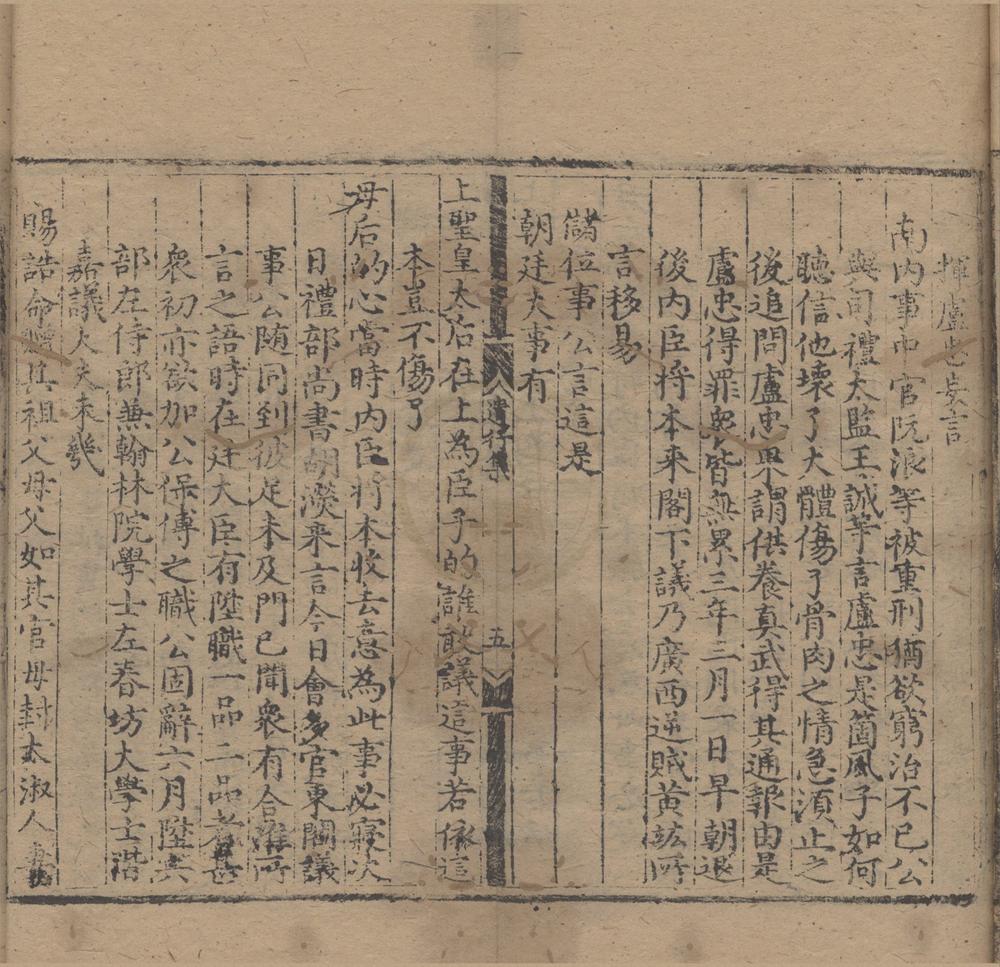 揮盧忠妄言
南内事中官阮浪等被重刑猶欲窮治不已公
與司禮太監王誠等言盧忠是箇風子如何
聽信他壞了大體傷了骨肉之情急須止之
後追問盧忠果謂供養真武得其通報由是
盧忠得罪衆皆無累三年三月一日早朝退
後内臣将本来閣下議乃廣西逆賊黃竑所
言移易
儲位事公言這是
朝廷大事有
遺行集
五
上聖皇太后在上為臣子的誰敢議這事若依這
本豈不傷了
母后的心當時内臣将本收去意為此事必寢次
日禮部尚書胡濙来言今日會多官東閣議
事公随同到彼足未及門已聞衆有合准所
言之語時在廷大臣有陞職一品二品者甚
衆初亦欲加公保傅之職公固辭六月陞兵
部左侍郎兼翰林院學士左春坊大學士階
嘉議大夫未幾
賜誥命贈其祖父母父如其官母封太淑人妻